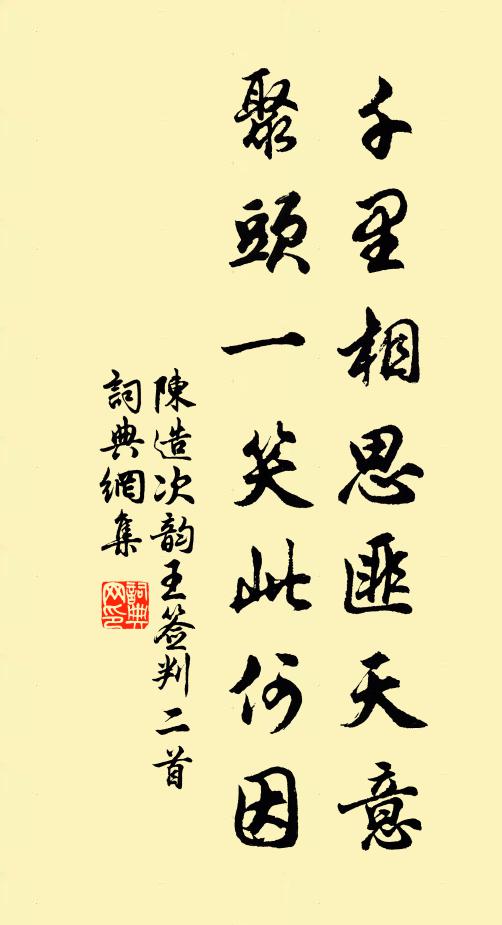 千里相思匪天意
聚頭一笑此何因
陳造次韵王签判二首
詞典網集
詞典
网印